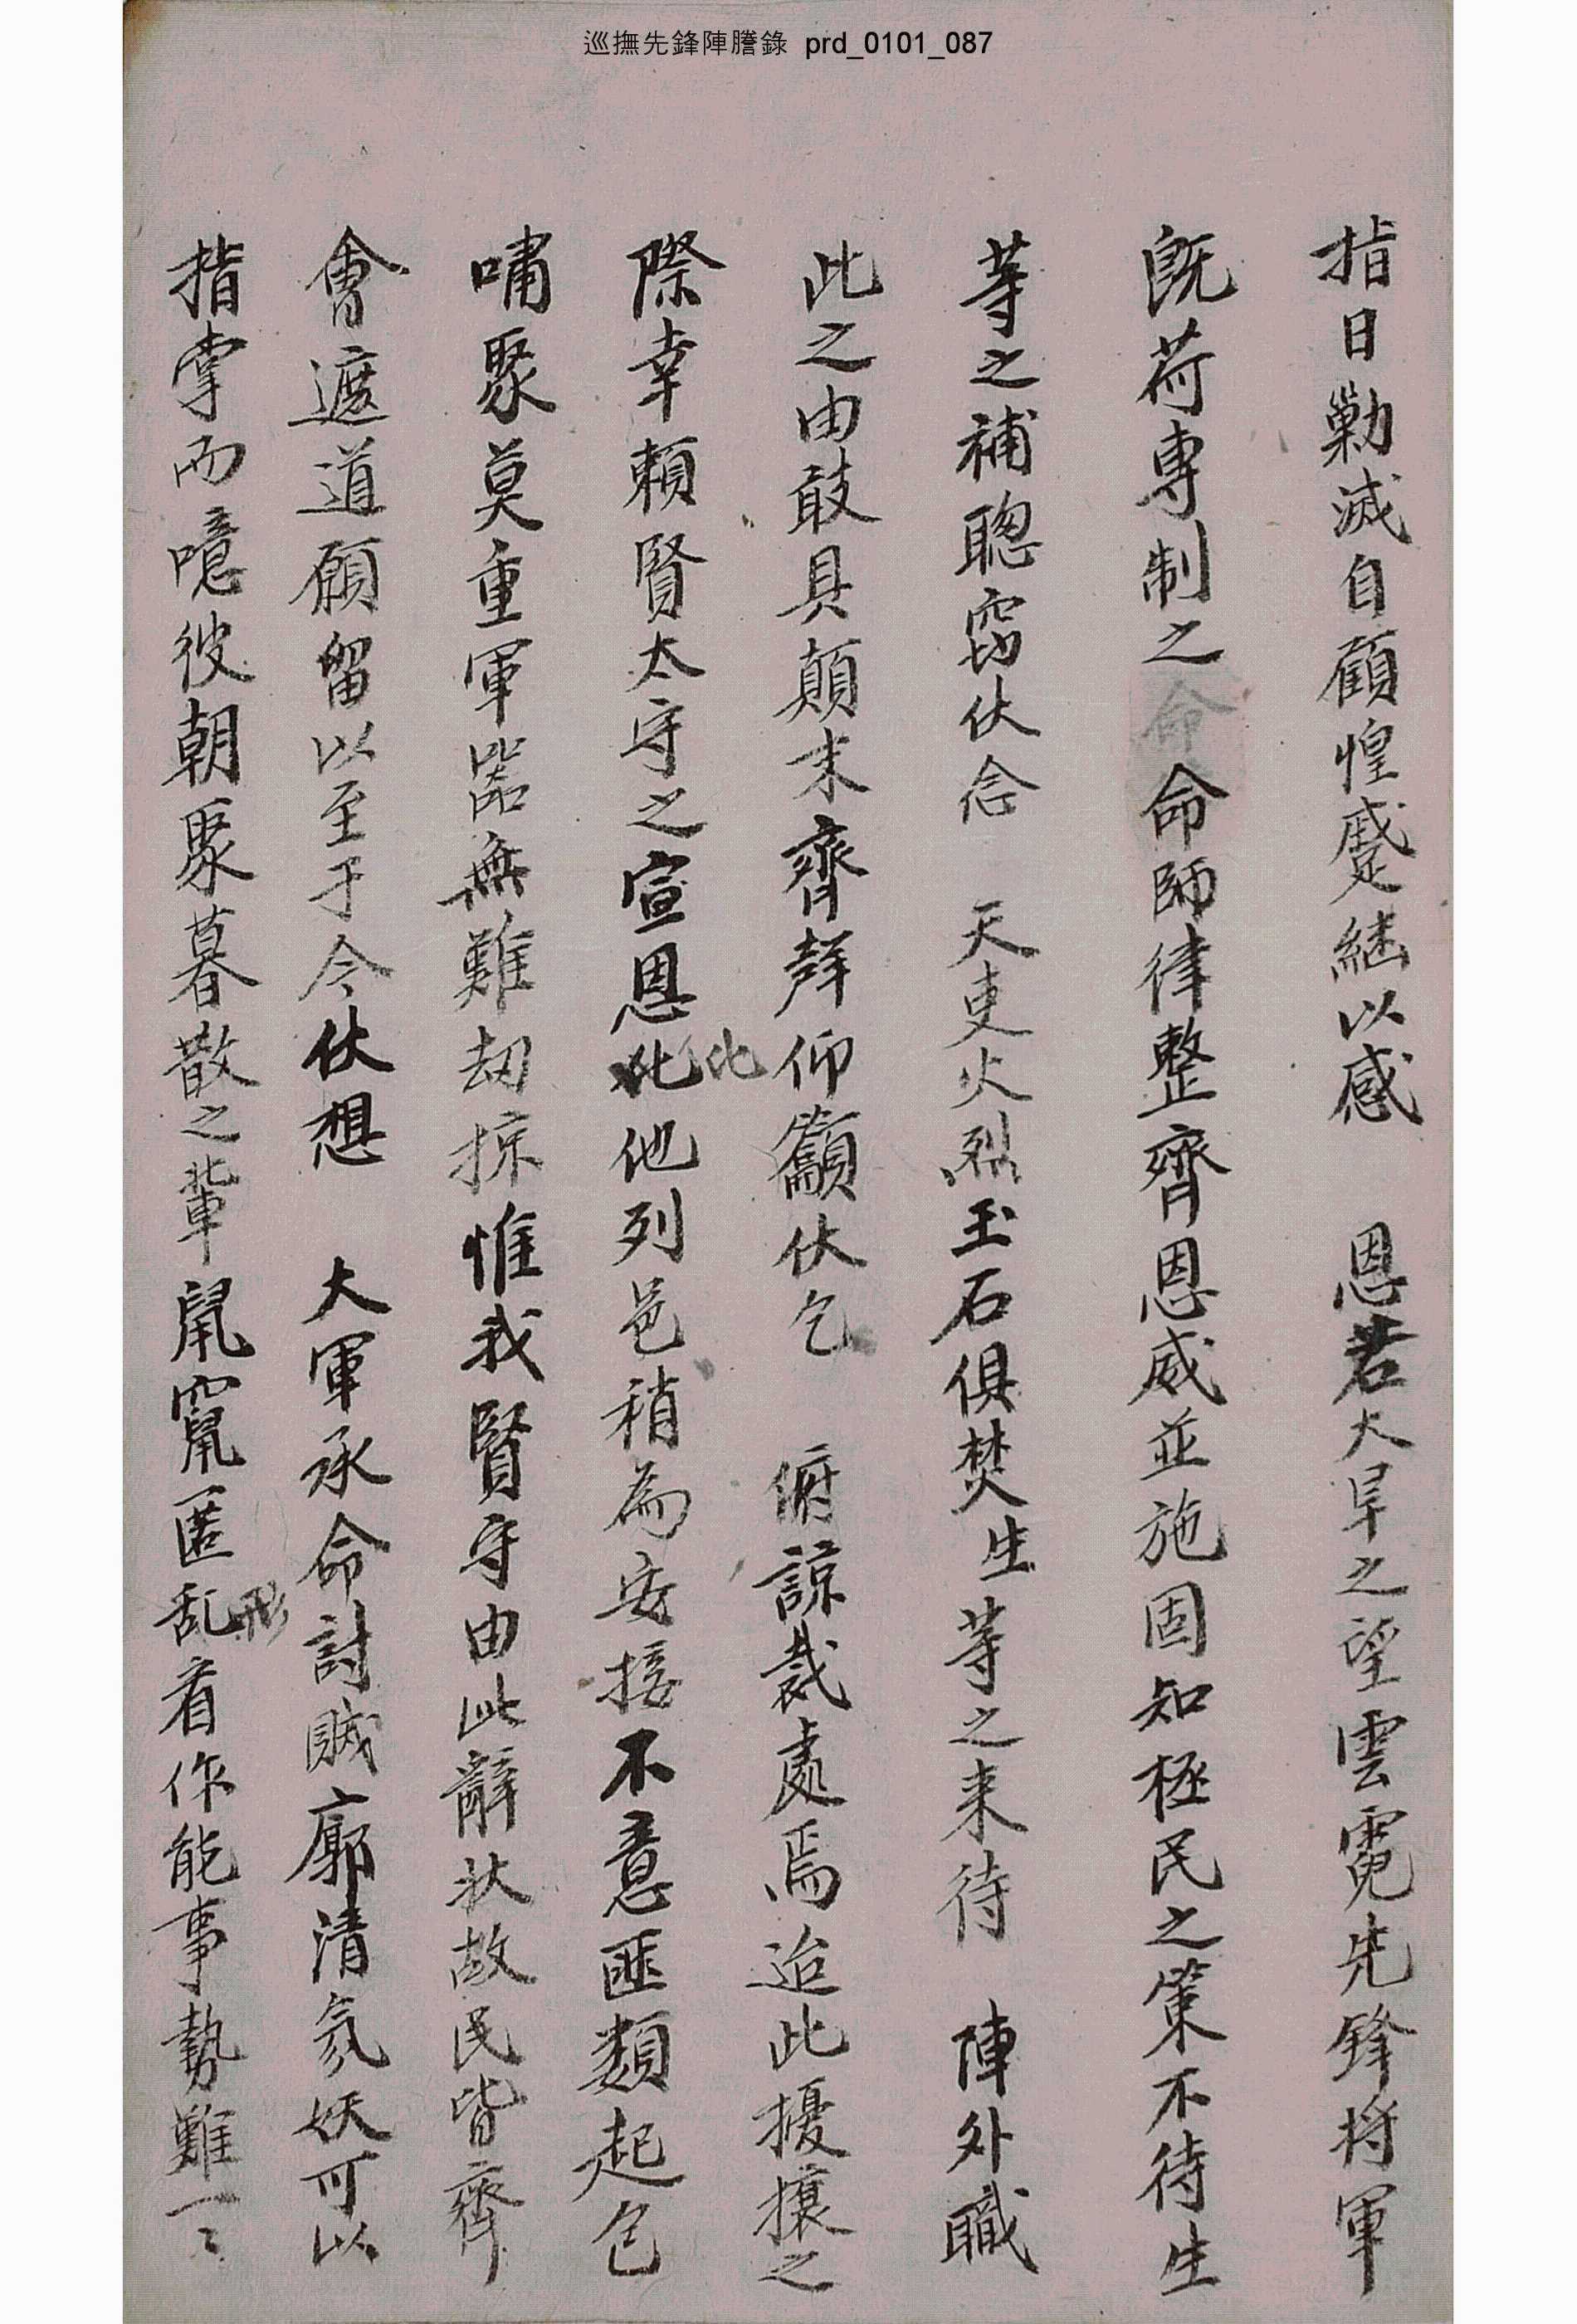 巡撫先鋒陣謄錄 prd_0101_087
指日勦滅自顧惶蹙継以感 恩若大旱之望雲霓先鋒將軍
旣荷專制之命命師律整齊恩威並施固知極民之策不待生
等之補聰窃伏念 天吏火烈玉石俱焚生等之来待 陣外職
此之由敢具顛末齊聲仰籲伏乞 俯諒裁處焉迨此擾攘之
際幸賴賢太守之宣恩此此他列邑稍為安接不意匪類起包
嘯聚莫重軍器無難刧掠惟我賢守由此辭狀故民皆齊
會遮道願留以至于今伏想 大軍承命討賊廓清氛妖可以
指掌而噫彼朝聚暮散之輩鼠竄匿乱形看作能事勢難一〻